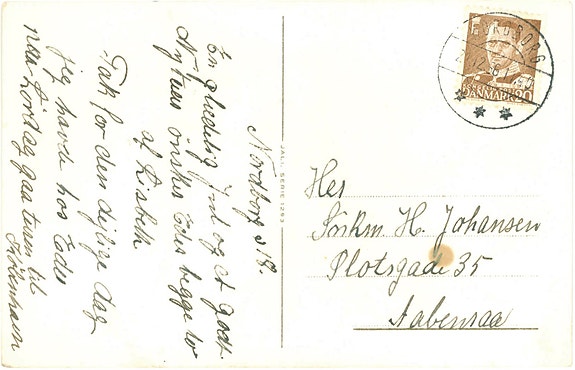 Nordborg d 18.
En glædelig Jul og et godt
Nytaar ønskes Eder begge to
af Lisbeth
Tak for den dejlige dag
jeg havde hos Eder
naar Lørdag gaa turen til
København
JALI SERIE 1293
NORDBORG
DANMARK 20
Her
Frkn H. Johansen
Slotsgade 35
Aabenraa